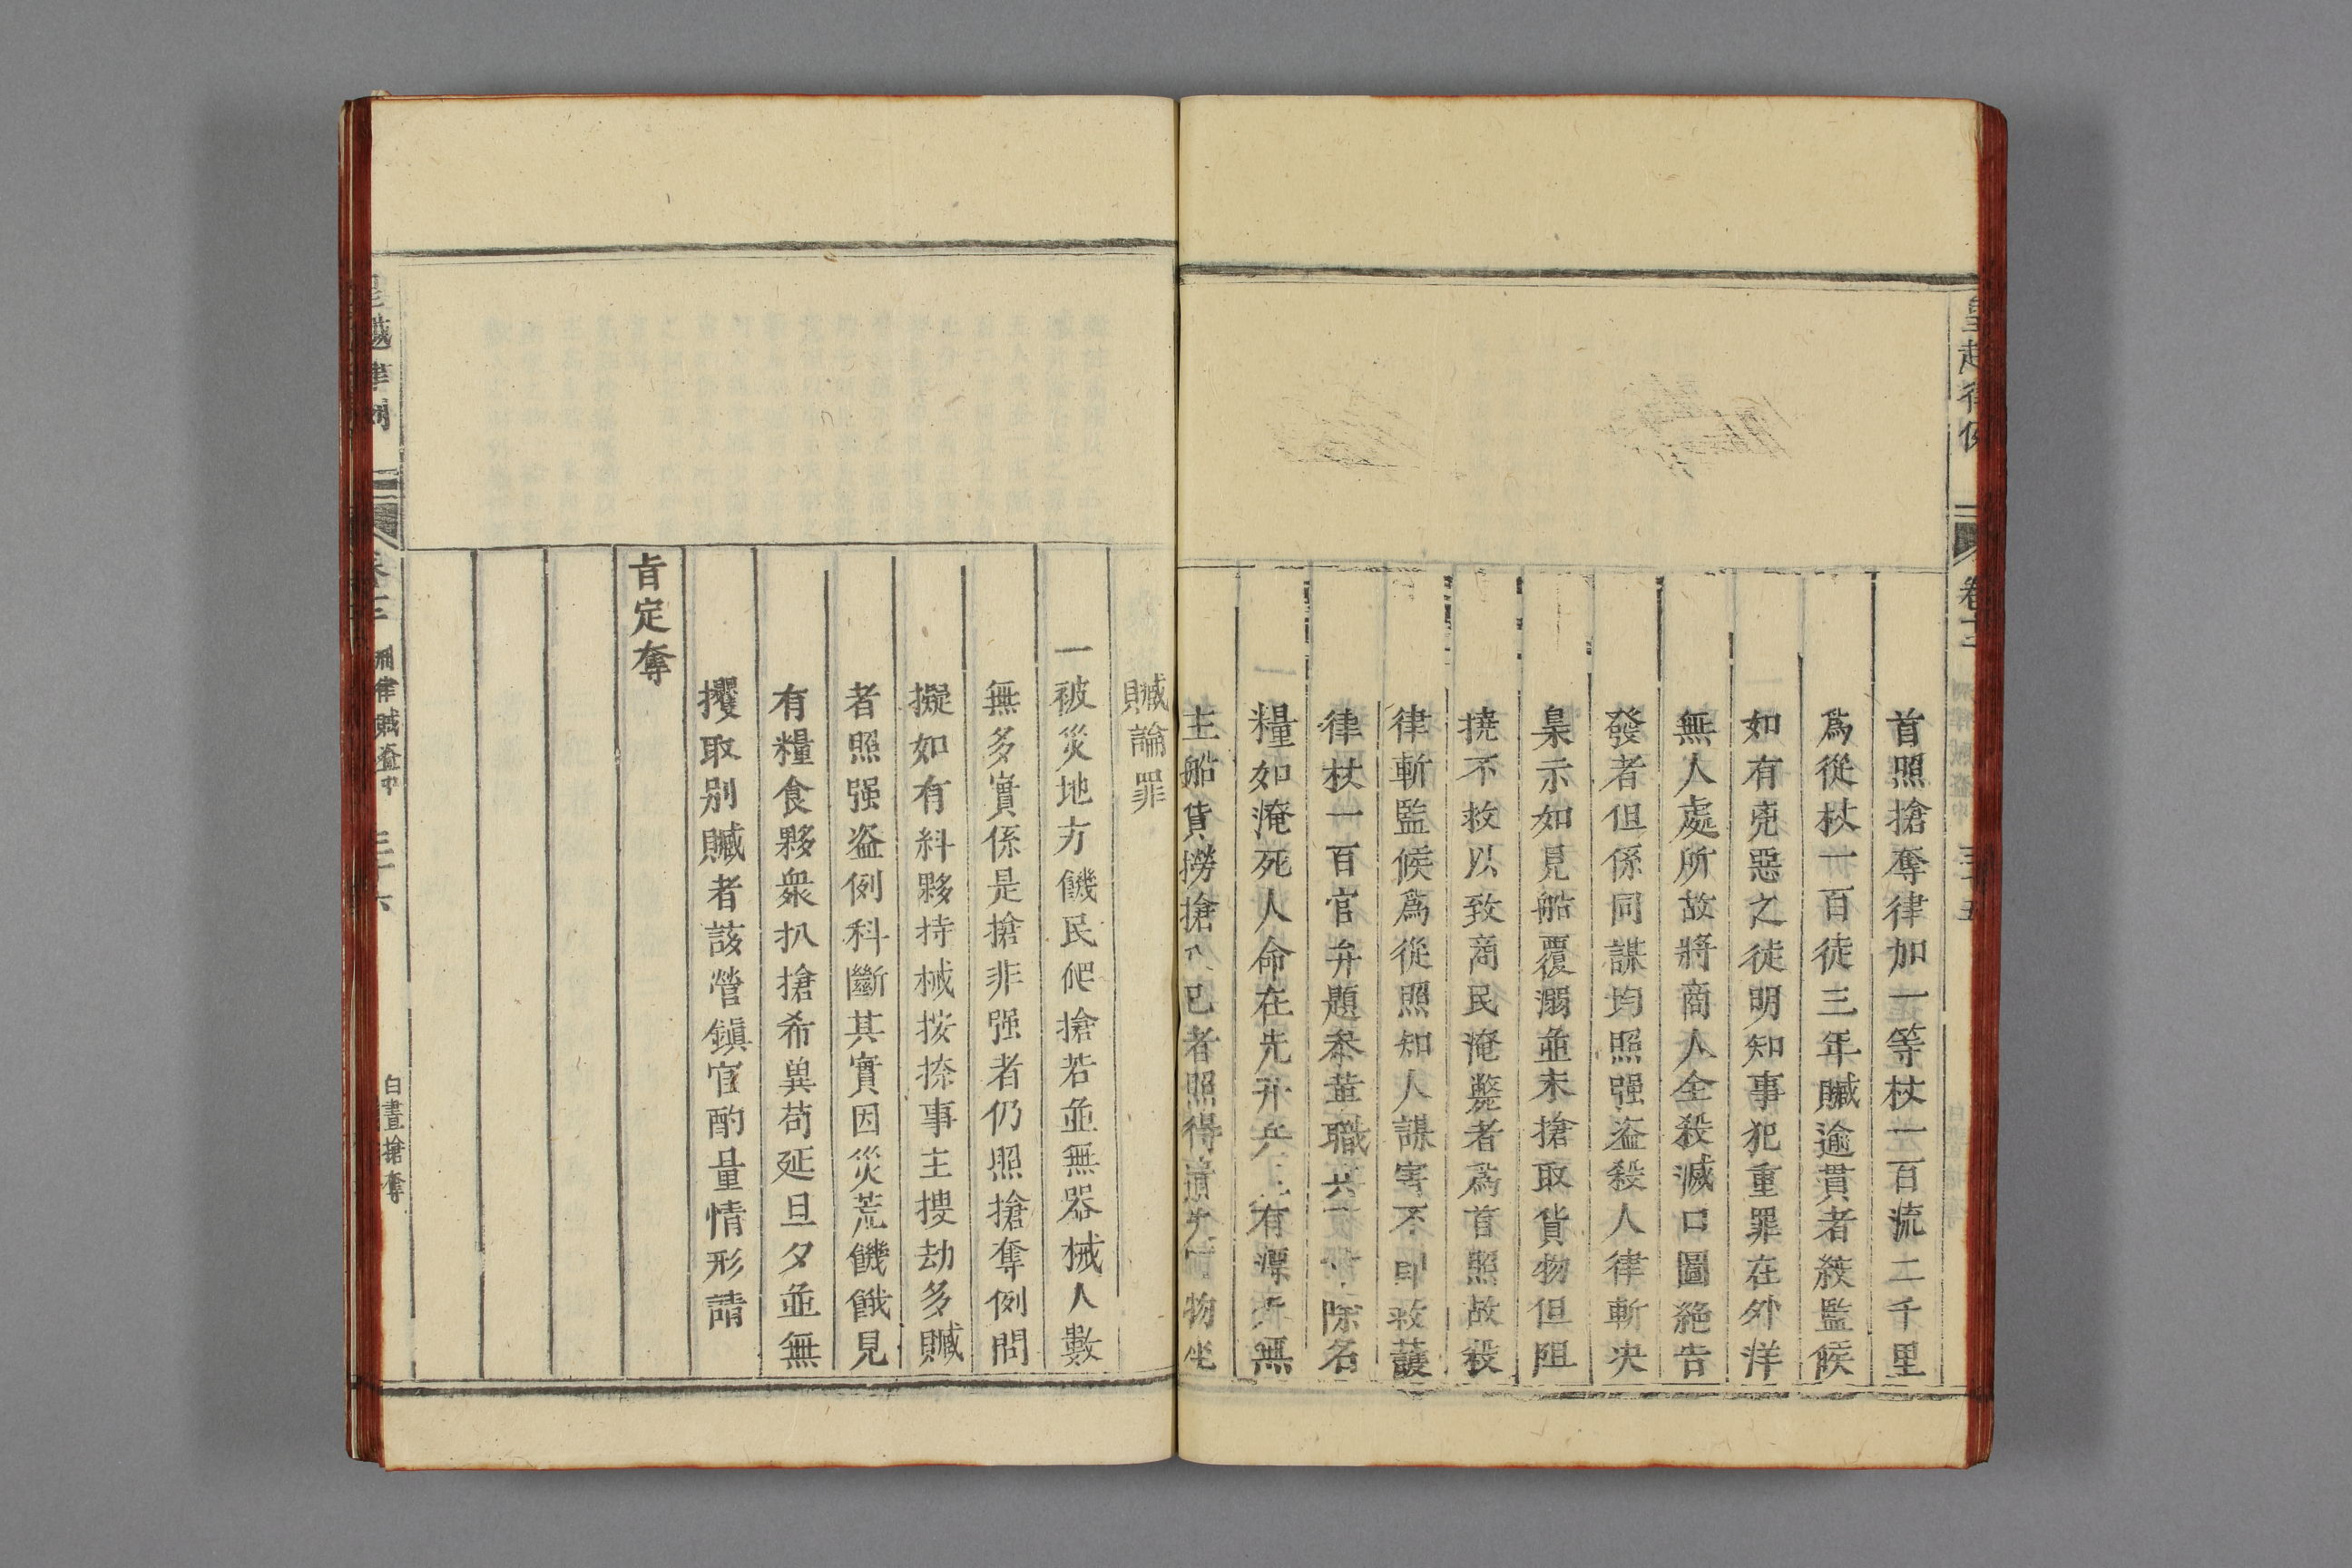 皇越律例
卷十三
三十五
首照搶奪律加一等杖一百流二千里
爲從杖一百徒三年贓逾貫者絞監候
如有兇惡之徒明知事犯重罪在外洋
無人處所故將商人全殺滅口圖絶告
發者但係同謀均照强盜殺人律斬决
梟示如見船覆溺並未搶取貨物但阻
撓不救以致商民淹斃者爲首照故殺
律斬監候爲從照知人謀害不即救護
律杖一百官弁題參革職兵
除名
糧如淹死人命在先弁兵
有漂
無
主船貨撈搶入己者照得遺失
物坐
贓論罪
一被災地方饑民爬搶若並無器械人數
無多實係是搶非强者仍照搶奪例問
擬如有糾夥持械按捺事主搜劫多贓
者照强盜例科斷其實因災荒饑餓見
有糧食夥衆扒搶希異苟延旦夕並無
攫取别贓者該營鎭官酌量情形請
旨定奪
皇越律例
刑律賊盜中
三十六
白晝搶奪